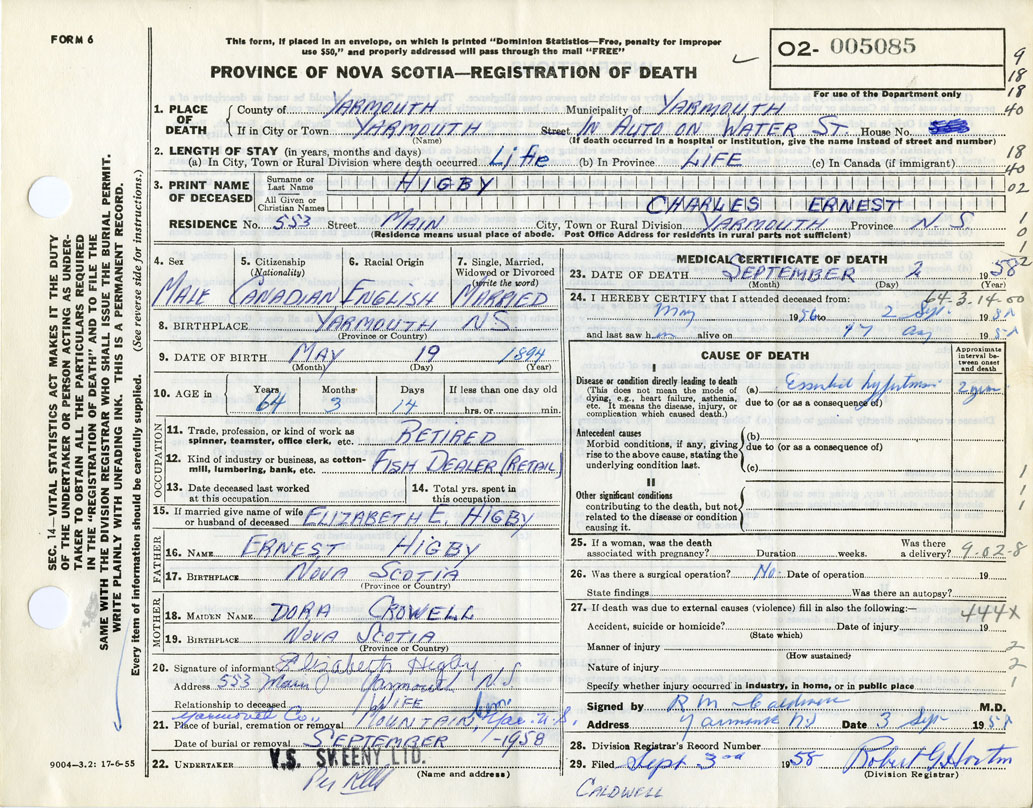 FORM 6
This form, if placed in an envelope, on which is printed "Dominion Statistics—Free, penalty for improper
use $50," and properly addressed will pass through the mail "FREE"
02- 005085
PROVINCE OF NOVA SCOTIA—REGISTRATION OF DEATH
For use of the Department only
1. PLACE OF DEATH
County of YARMOUTH Municipality of YARMOUTH
If in City or Town YARMOUTH Street IN AUTO ON WATER ST. House No.
(Name) (If death occurred in a hospital or institution, give the name instead of street and number)
2. LENGTH OF STAY (in years, months and days)
(a) In City, Town or Rural Division where death occurred Life (b) In Province LIFE (c) In Canada (if immigrant)
3. PRINT NAME OF DECEASED
Surname or Last Name HIGBY
All Given or Christian Names CHARLES ERNEST
RESIDENCE No. 553 Street MAIN City, Town or Rural Division YARMOUTH Province N.S
(Residence means usual place of abode. Post Office Address for residents in rural parts not sufficient)
9
18
18
40
18
40
02
1
0
1
2
SEC. 14—VITAL STATISTICS ACT MAKES IT THE DUTY
OF THE UNDERTAKER OR PERSON ACTING AS UNDER-
TAKER TO OBTAIN ALL THE PARTICULARS REQUIRED
IN THE "REGISTRATION OF DEATH" AND TO FILE THE
SAME WITH THE DIVISION REGISTRAR WHO SHALL ISSUE THE BURIAL PERMIT.
WRITE PLAINLY WITH UNFADING INK. THIS IS A PERMANENT RECORD.
Every item of information should be carefully supplied. (See reverse side for instructions.)
4. Sex 5. Citizenship (Nationality) 6. Racial Origin 7. Single, Married, Widowed or Divorced (write the word)
MALE CANADIAN ENGLISH MARRIED
8. BIRTHPLACE YARMOUTH NS
(Province or Country)
9. DATE OF BIRTH MAY 19 1894
(Month) (Day) (Year)
10. AGE in Years Months Days If less than one day old
64 3 14 hrs. or min.
OCCUPATION
11. Trade, profession, or kind of work as
spinner, teamster, office clerk, etc. RETIRED
12. Kind of industry or business, as cotton-
mill, lumbering, bank, etc. FISH DEALER (RETAIL)
13. Date deceased last worked at this occupation
14. Total yrs. spent in this occupation
15. If married give name of wife
or husband of deceased ELIZABETH E. HIGBY
FATHER
16. NAME ERNEST HIGBY
17. BIRTHPLACE NOVA SCOTIA
(Province or Country)
MOTHER
18. MAIDEN NAME DORA CROWELL
19. BIRTHPLACE NOVA SCOTIA
(Province or Country)
20. Signature of informant Elizabeth Higby
Address 553 Main Yarmouth N S
Relationship to deceased WIFE
21. Place of burial, cremation or removal MOUNTAIN
Date of burial or removal SEPTEMBER -1958
22. UNDERTAKER V.S. SWEENY LTD.
(Name and address)
9004—3.2: 17-6-55
MEDICAL CERTIFICATE OF DEATH
23. DATE OF DEATH SEPTEMBER 2 1958
(Month) (Day) (Year)
24. I HEREBY CERTIFY that I attended deceased from: 64-3-14-00
May 1956 to 2 Sept. 1958
and last saw him alive on Aug 1958
CAUSE OF DEATH
Approximate interval between onset and death
I
Disease or condition directly leading to death (a) Essential hypertension 2 years
(This does not mean the mode of
dying, e.g., heart failure, asthenia,
etc. It means the disease, injury, or
complication which caused death.)
due to (or as a consequence of)
Antecedent causes (b)
Morbid conditions, if any, giving
rise to the above cause, stating the
underlying condition last.
due to (or as a consequence of)
(c)
II
Other significant conditions
contributing to the death, but not
related to the disease or condition
causing it.
1
1
1
25. If a woman, was the death Was there
associated with pregnancy? Duration weeks. a delivery? 9-02-8
26. Was there a surgical operation? No. Date of operation 19
State findings Was there an autopsy?
27. If death was due to external causes (violence) fill in also the following:— 444X
Accident, suicide or homicide? Date of injury 19
(State which)
Manner of injury 2
(How sustained)
Nature of injury 2
Specify whether injury occurred in industry, in home, or in public place 1
Signed by R M Caldwell M.D.
Address Yarmouth N.S Date 3 Sept 1958
28. Division Registrar's Record Number
29. Filed Sept 3rd 1958 Robert G Horton
(Division Registrar)
CALDWELL